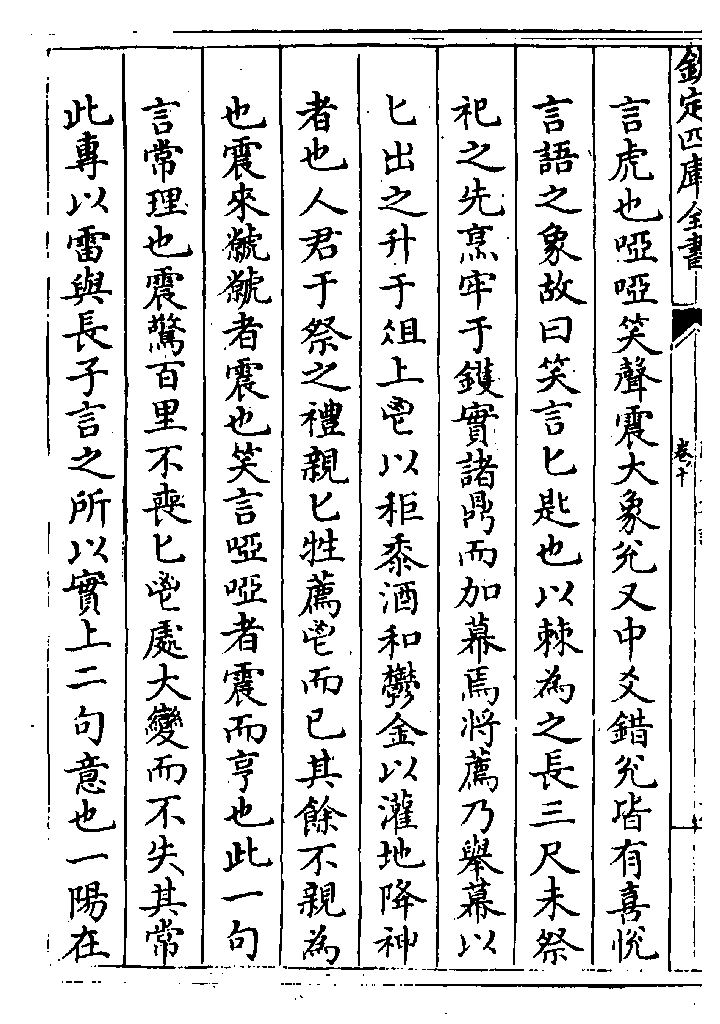 欽定四庫全書
卷十
言虎也啞啞笑聲震大象兌又中爻錯兌皆有喜悅
言語之象故曰笑言匕匙也以棘為之長三尺未祭
祀之先烹牢于鑊實諸鼎而加冪焉將薦乃舉冪以
匕出之升于俎上鬯以秬黍酒和鬱金以灌地降神
者也人君于祭之禮親匕牲薦鬯而已其餘不親為
也震來虩虩者震也笑言啞啞者震而亨也此一句
言常理也震驚百里不喪匕鬯處大變而不失其常
此專以雷與長子言之所以實上二句意也一陽在